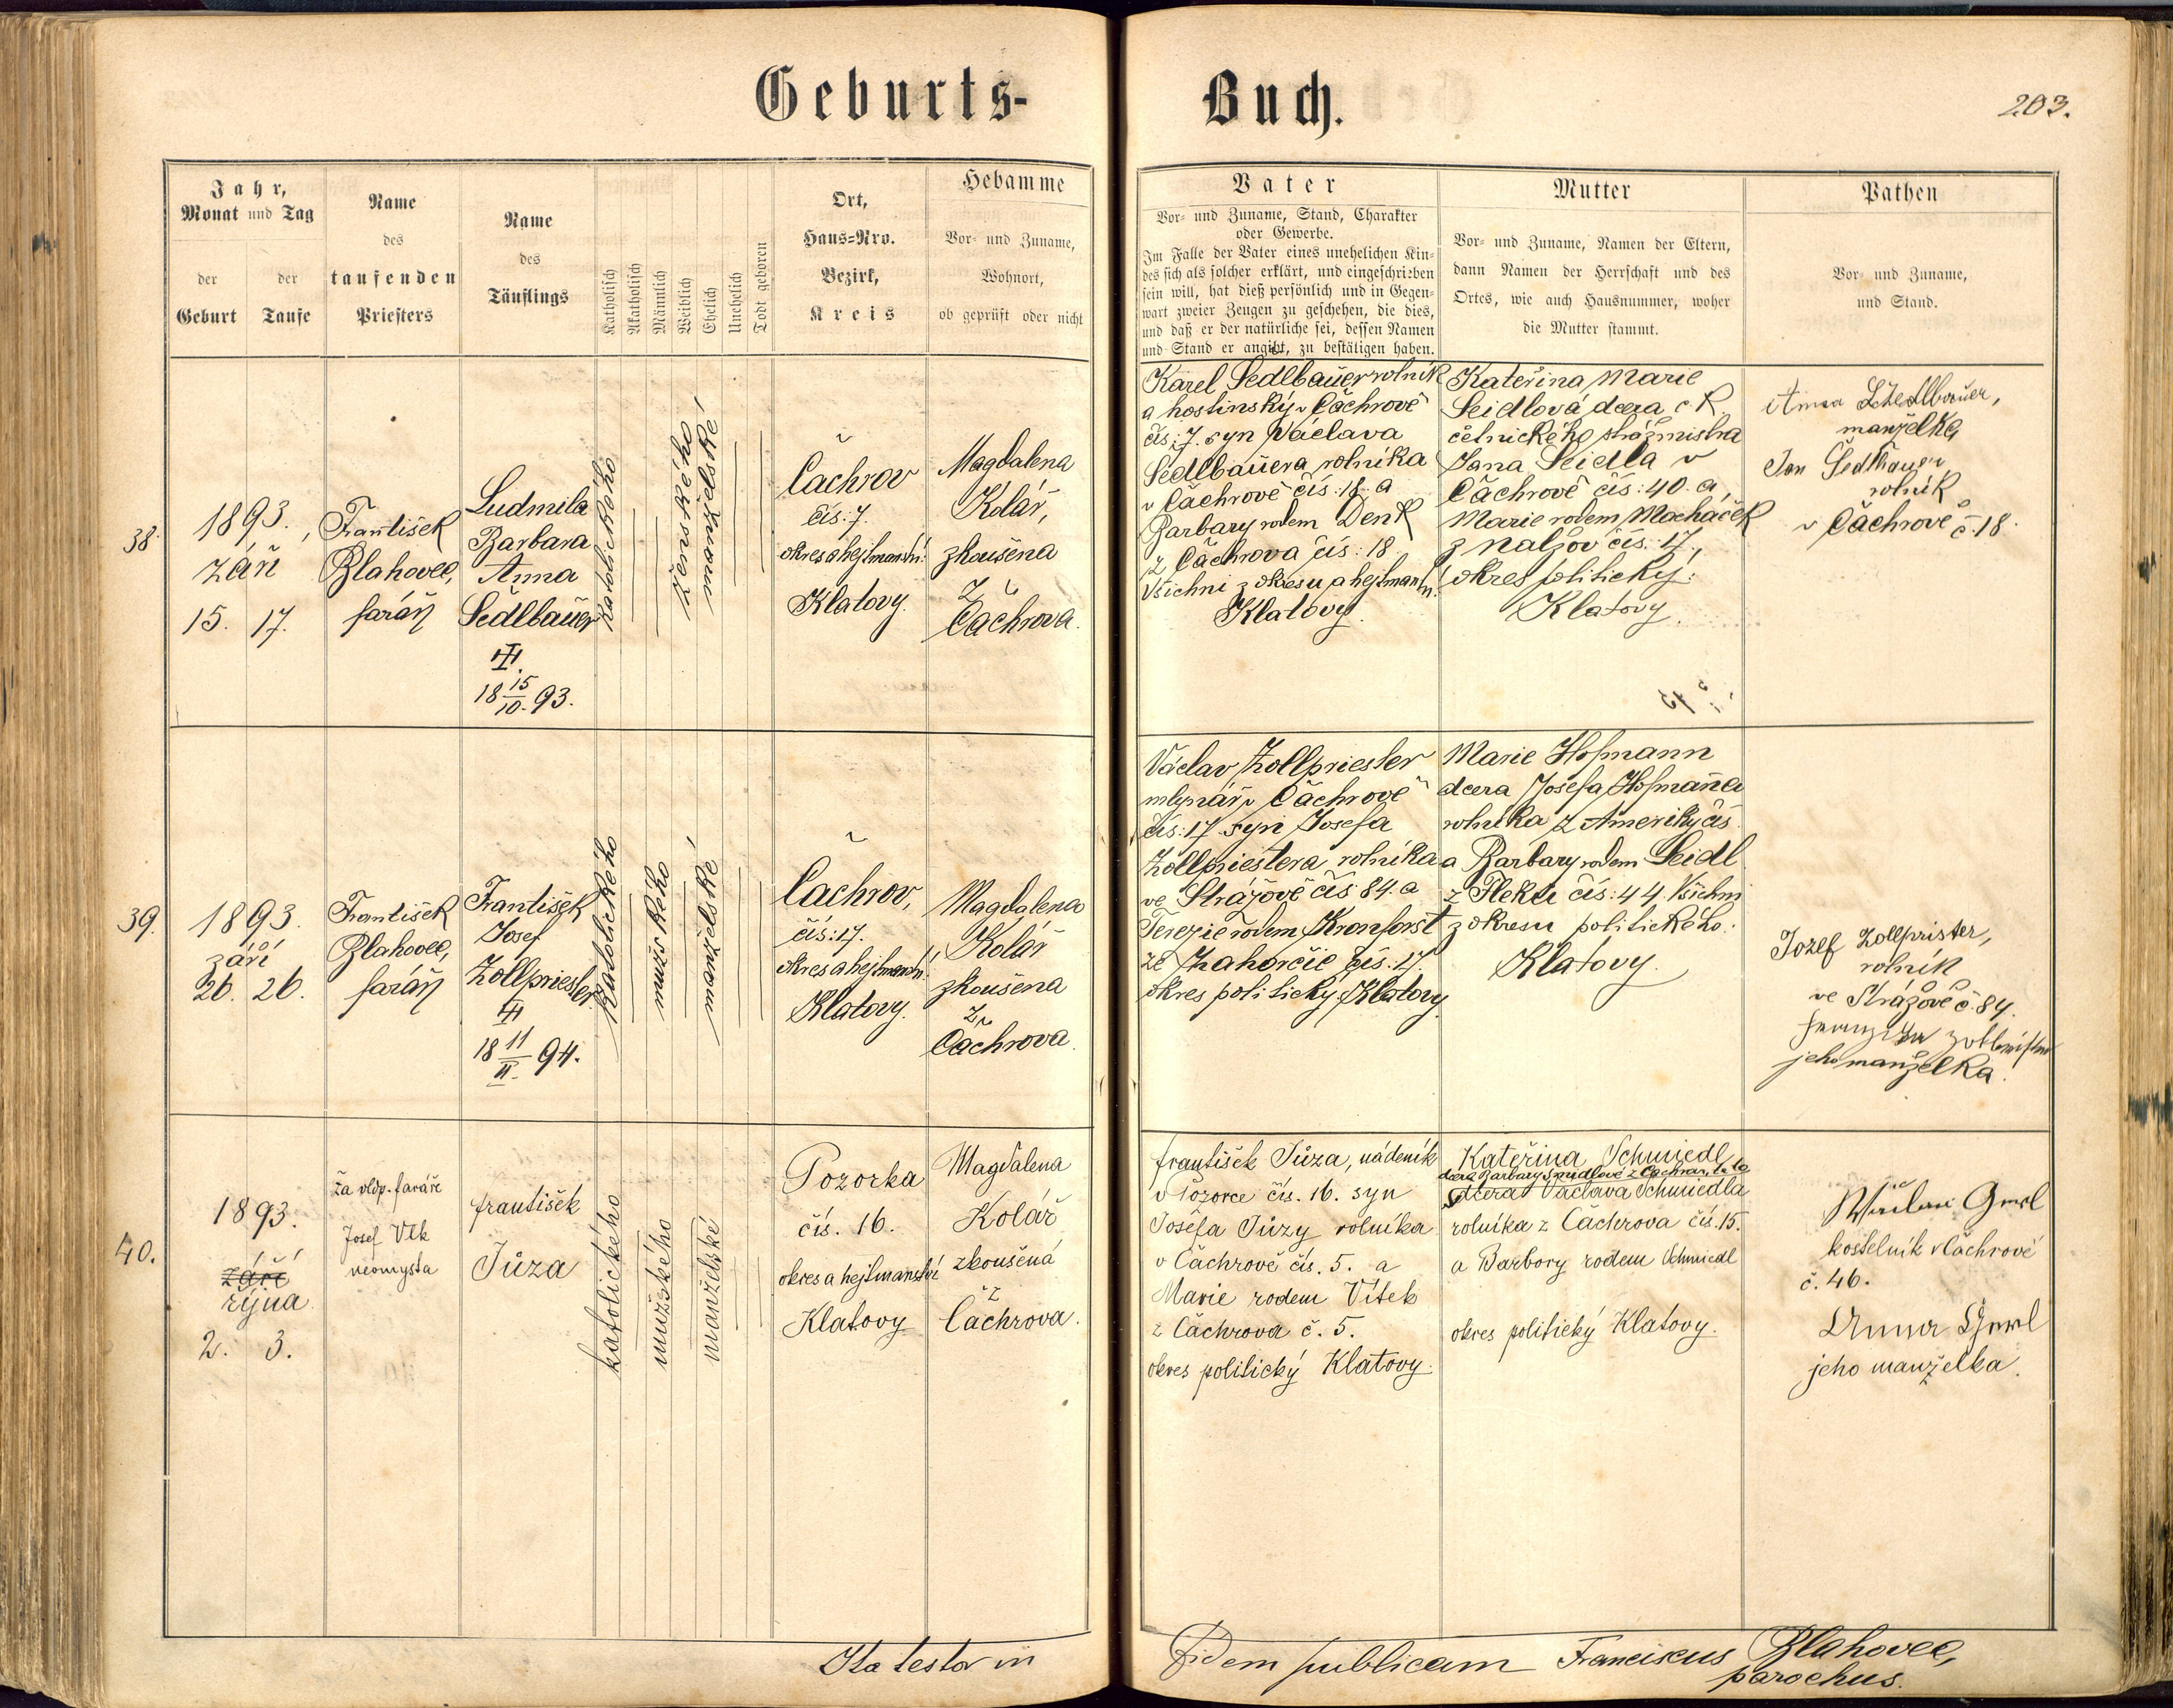 Geburts-
Buch.
203.
Jahr,
Monat und Tag
der
Geburt
der
Taufe
Name
des
taufenden
Priesters
Name
des
Täuflings
Katholisch
Akatholisch
Männlich
Weiblich
Ehelich
Unehelich
Todt geboren
Ort,
Haus-Nro.
Bezirk,
Kreis
Hebamme
Vor- und Zuname,
Wohnort,
ob geprüft oder nicht
Vater
Vor- und Zuname, Stand, Charakter
oder Gewerbe.
Im Falle der Vater eines unehelichen Kin-
des sich als solcher erklärt, und eingeschrieben
sein will, hat dieß persönlich und in Gegen-
wart zweier Zeugen zu geschehen, die dies,
und daß er der natürliche sei, dessen Namen
und Stand er angibt, zu bestätigen haben.
Mutter
Vor- und Zuname, Namen der Eltern,
dann Namen der Herrschaft und des
Ortes, wie auch Hausnummer, woher
die Mutter stammt.
Pathen
Vor- und Zuname,
und Stand.
38.
1893.
září
15. 17.
František
Blahovec,
farář
Ludmila
Barbara
Anna
Sedlbauer
18 15/10. 93.
katolického
ženského
manželské
Čachrov
čís: 7.
okres a hejtmanství:
Klatovy.
Magdalena
Kolář,
zkoušena
z
Čachrova.
Karel Sedlbauer rolník
a hostinský v Čachrově
čís: 7. syn Václava
Sedlbauera rolníka
v Čachrově čís: 18. a
Barbary rodem Denk
z Čachrova čís: 18.
Všichni z okresu a hejtmanství:
Klatovy.
Kateřina Marie
Seidlová dcera c. k.
četnického strážmistra
Jana Seidla v
Čachrově čís: 40. a
Marie rodem Macháček
z Nalžov čís: 17,
okres politický:
Klatovy.
Anna
manželka
Jan Sedlbauer
rolník
v Čachrově č. 18.
39.
1893.
září
26. 26.
František
Blahovec,
farář
František
Josef
Zollpriester
18 11/II. 94.
katolického
mužského
manželské
Čachrov,
čís: 17.
okres a hejtmanství:
Klatovy.
Magdalena
Kolář
zkoušena
z
Čachrova.
Václav Zollpriester
mlynář v Čachrově
čís: 17 syn Josefa
Zollpriestera rolníka
ve Strážově čís: 84. a
Terezie rodem Kronforst
ze Zahorčic čís: 17.
okres politický Klatovy
Marie Hofmann
dcera Josefa Hofmanna
rolníka z Ameriky čís.
a Barbary rodem Seidl
z Fleku čís: 44. Všichni
z okresu politického:
Klatovy.
Jozef Zollprister,
rolník
ve Strážově č. 84.
jeho manželka.
40.
1893.
září
října
2. 3.
Za vldp. faráře
Josef Vlk
neomysta
František
Jůza
katolického
mužského
manželské
Pozorka
čís. 16.
okres a hejtmanství
Klatovy
Magdalena
Kolář
zkoušená
z
Čachrova.
František Jůza, nádeník
v Pozorce čís. 16. syn
Josefa Jůzy rolníka
v Čachrově čís. 5. a
Marie rodem Vítek
z Čachrova č. 5.
okres politický Klatovy.
Kateřina Schmiedl,
dcera Barbary z
dcera Václava Schmiedla
rolníka z Čachrova čís. 15.
a Barbory rodem Schmiedl
okres politický Klatovy.
kostelník v Čachrově
č. 46.
Anna
jeho manželka.
Ita testor in
Fidem publicam Franciscus Blahovec,
parochus.